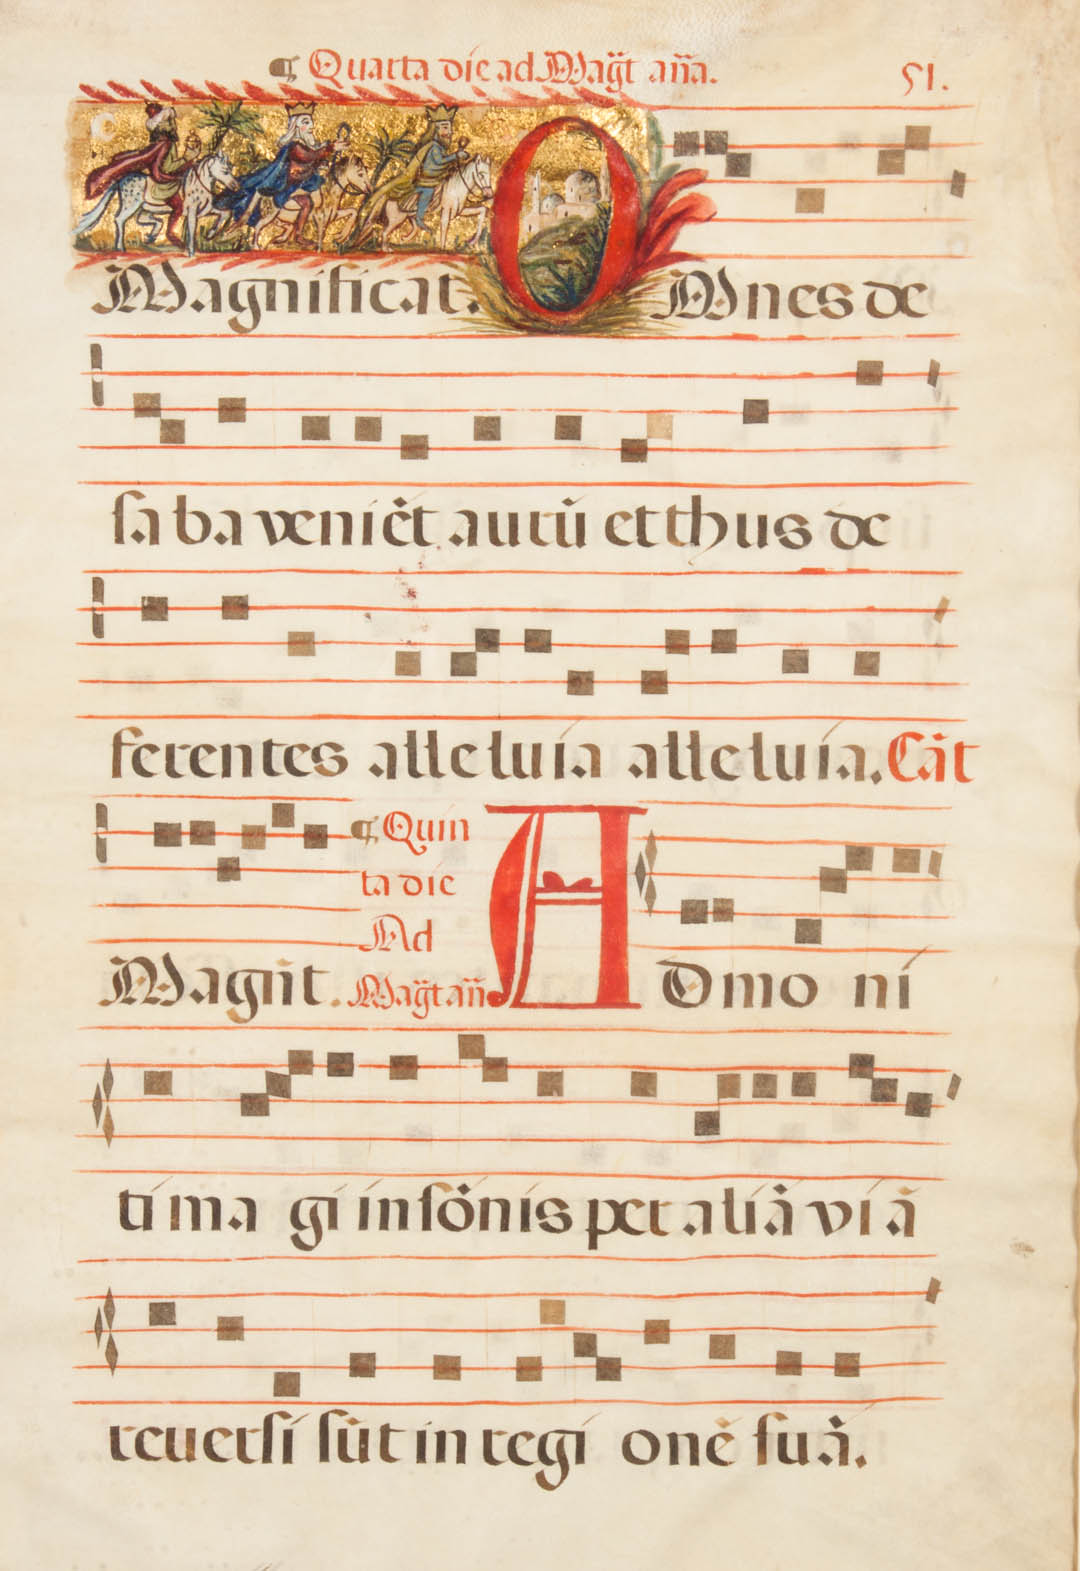 ¶ Quarta die ad Mag̃t aña. 51.
Magnificat. OMnes de
saba veniẽt aurũ et thus de
ferentes alleluia alleluia. Cãt
¶ Quin
ta die
Ad
Magñt. Mag̃t añ ADmo ni
ti magi in sõnis per aliã viã
reuersi sũt in regi onẽ suã.